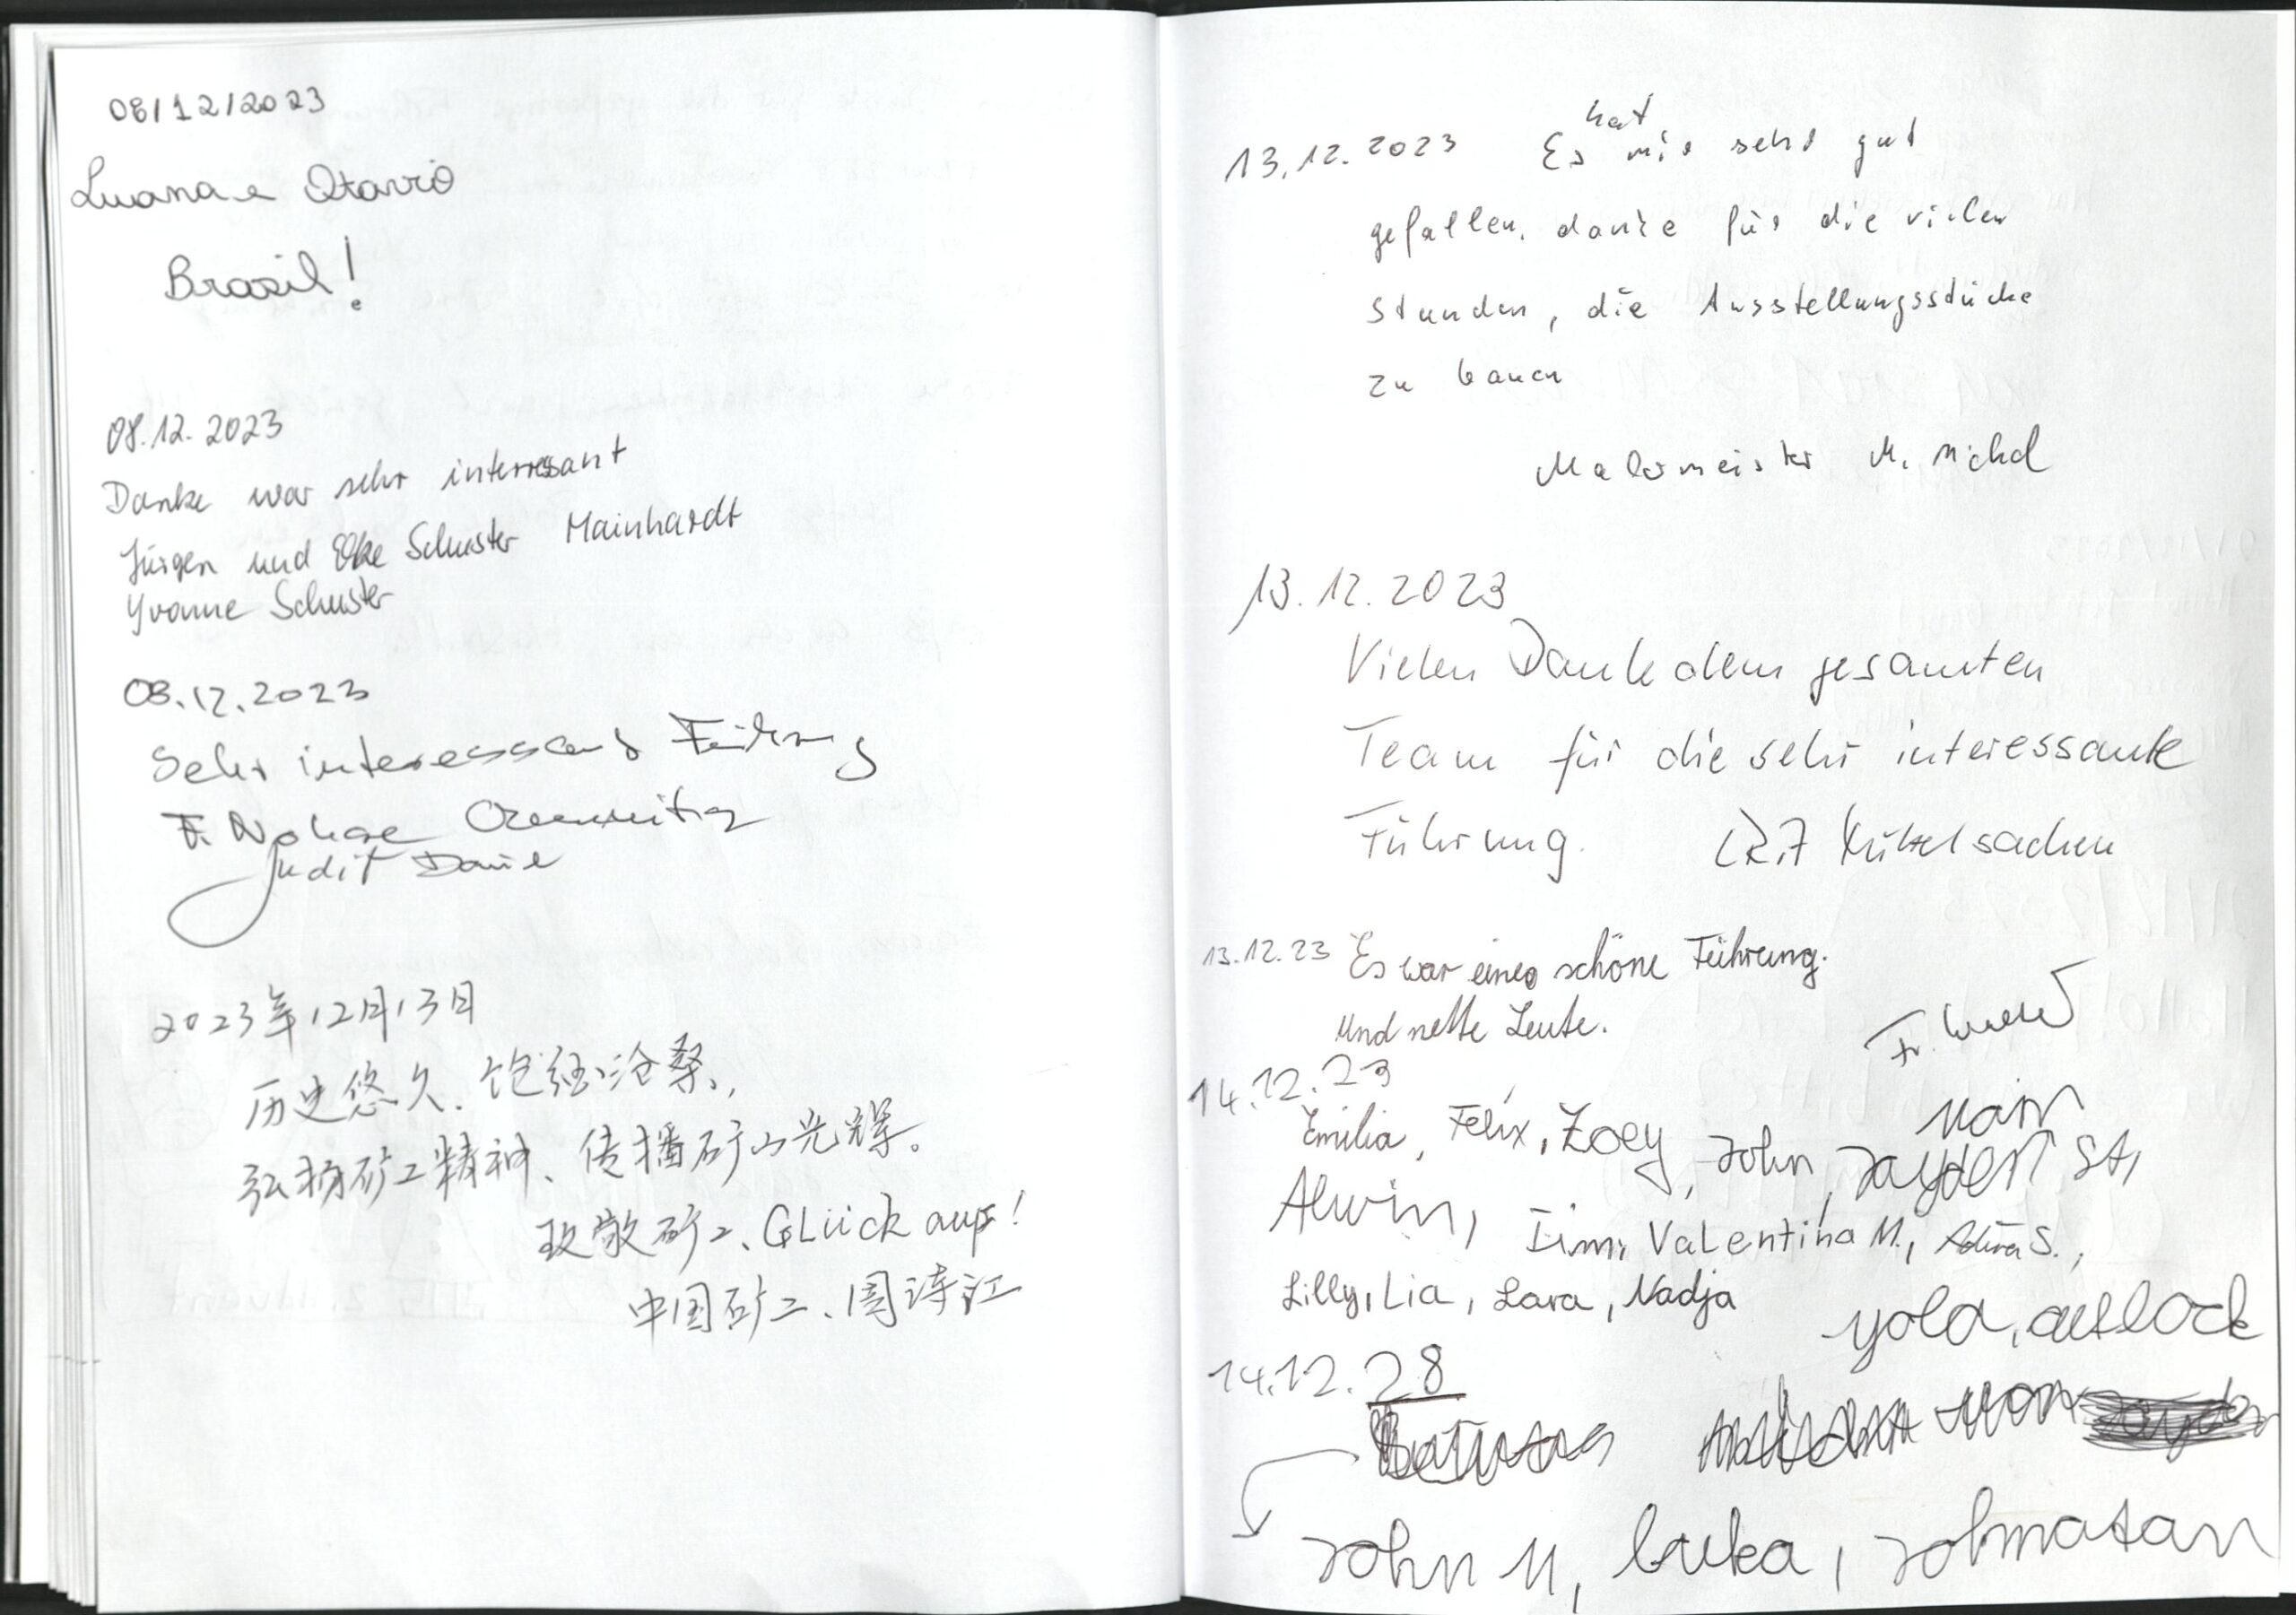 08/12/2023
Luana e Otavio
Brasil!
08.12.2023
Danke war sehr interressant
Jürgen und Elke Schuster Mainhardt
Yvonne Schuster
08.12.2023
Sehr interessand Führung
F. Nohae
Judit
2023年12月13日
历史悠久、饱经沧桑,
弘扬矿工精神、传播矿山光辉。
致敬矿工、GLück auf!
中国矿工、周涛江
13.12.2023 Es hat mir sehr gut
gefallen, danke für die vielen
Stunden, die Ausstellungsstücke
zu bauen
Malermeister M.
13.12.2023
Vielen Dank dem gesamten
Team für die sehr interessante
Führung.
13.12.23 Es war eine schöne Führung.
Und nette Leute.
Fr.
14.12.23
Emilia, Felix, Zoey, John, Jayden St,
Alwin, Timi, Valentina M., S.,
Lilly, Lia, Lara, Nadja
yola,
14.12.28
John M, luka,